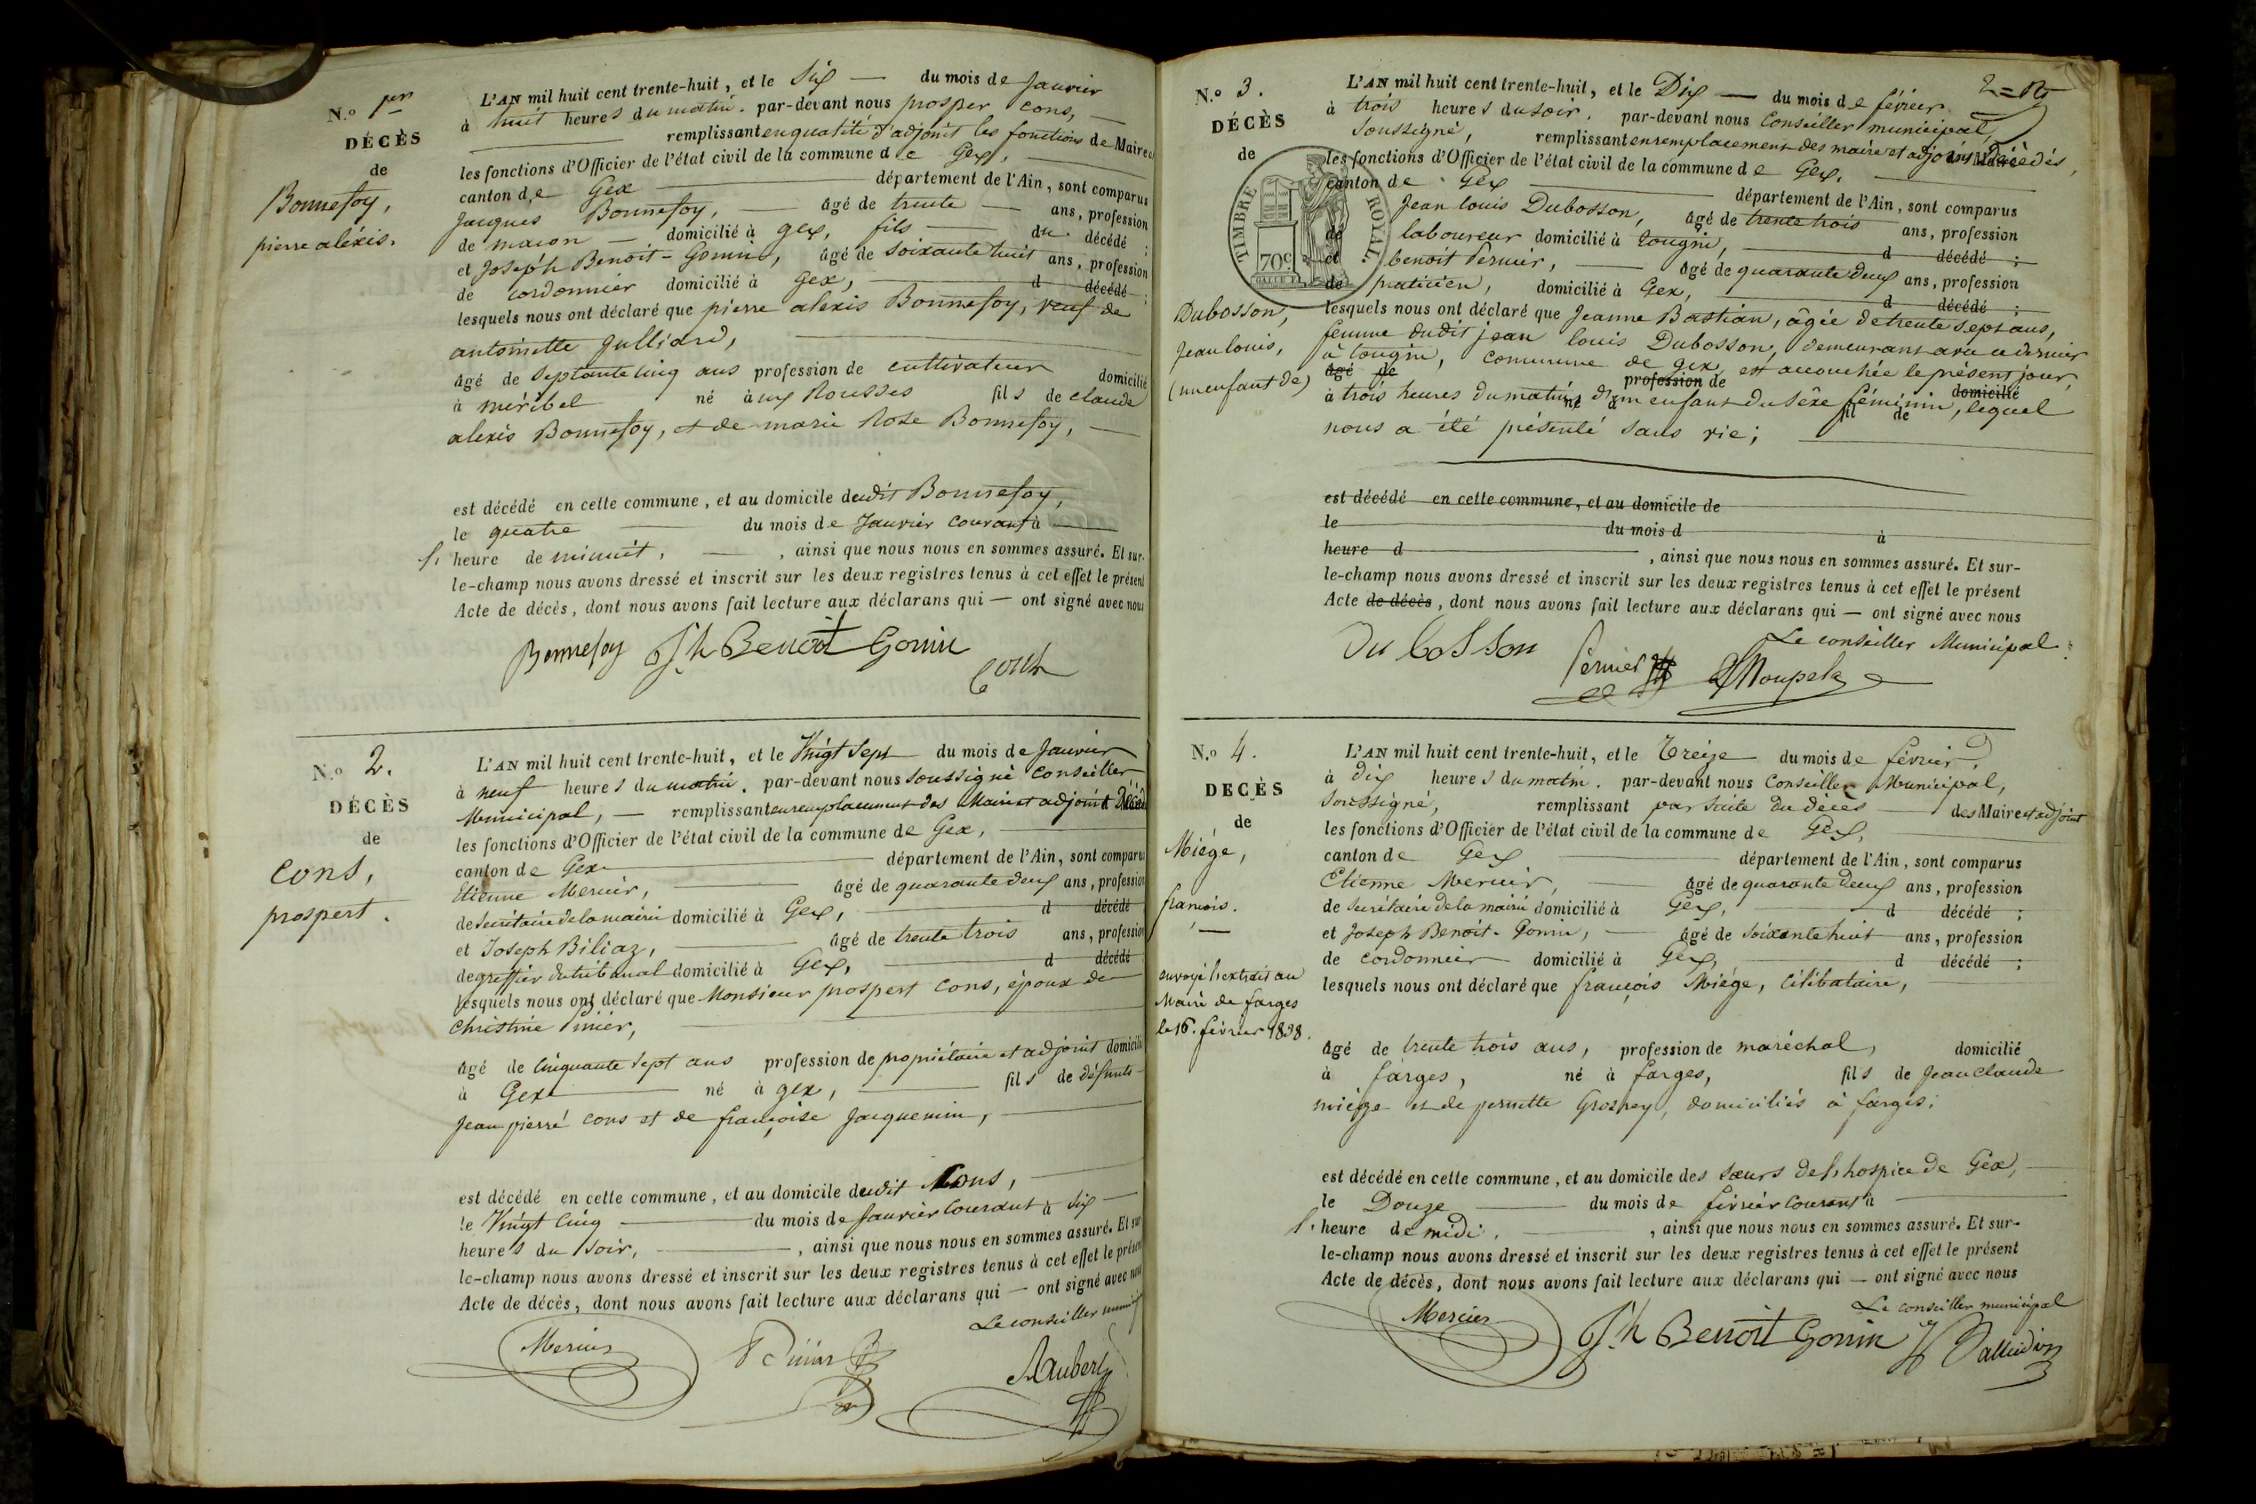 N.o 1er
DÉCÈS
de
Bonnefoy,
pierre aléxis.
L'AN mil huit cent trente-huit, et le Six — du mois de Janvier
à huit heures du matin. par-devant nous prosper cons, —
remplissant en qualité d'adjoint les fonctions de Maire
les fonctions d'Officier de l'état civil de la commune de Gex,
canton de Gex département de l'Ain, sont comparus
Jacques Bonnefoy, — âgé de trente — ans, profession
de macon — domicilié à gex, fils — du décédé ;
et Joseph Benoit-Gonin, âgé de soixante huit ans, profession
de cordonnier domicilié à gex, d décédé ;
lesquels nous ont déclaré que pierre alexis Bonnefoy, veuf de
antoinette Julliard,
âgé de septante cinq ans profession de cultivateur domicilié
à méribel né aux Rousses fils de claude
alexis Bonnefoy, et de marie Rose Bonnefoy, —
est décédé en cette commune, et au domicile dudit Bonnefoy,
le quatre du mois de Janvier courant à
1, heure de minuit, — , ainsi que nous nous en sommes assuré. Et sur-
le-champ nous avons dressé et inscrit sur les deux registres tenus à cet effet le présent
Acte de décès, dont nous avons fait lecture aux déclarans qui — ont signé avec nous
Bonnefoy Jh Benoit Gonin
Cons
N.o 2.
DÉCÈS
de
Cons,
prospert.
L'AN mil huit cent trente-huit, et le Vingt Sept du mois de Janvier
à neuf heures du matin. par-devant nous soussigné Conseiller
Municipal, — remplissant en remplacement des Maire et adjoint
les fonctions d'Officier de l'état civil de la commune de Gex,
canton de Gex département de l'Ain, sont comparus
Etienne Mercier, âgé de quarante deux ans, profession
de secrétaire de la mairie domicilié à Gex, d décédé
et Joseph Biliaz, âgé de trente trois ans, profession
de greffier du tribunal domicilié à Gex, d décédé
lesquels nous ont déclaré que Monsieur prospert Cons, époux de
Christine Pinier,
âgé de Cinquante Sept ans profession de propriétaire et adjoint domicilié
à Gex né à gex, fils de défunts
Jean pierre cons et de françoise Jacquemin,
est décédé en cette commune, et au domicile dudit Cons,
le Vingt Cinq du mois de Janvier Courant à Six
heures du soir, , ainsi que nous nous en sommes assuré. Et sur
le-champ nous avons dressé et inscrit sur les deux registres tenus à cet effet le présent
Acte de décès, dont nous avons fait lecture aux déclarans qui — ont signé avec nous
Le conseiller munic
Mercier
Aubert
N.o 3.
DÉCÈS
de
TIMBRE ROYAL
70c
Dubosson,
Jean louis,
(un enfant de)
L'AN mil huit cent trente-huit, et le Dix — du mois de février
à trois heures du soir. par-devant nous Conseiller municipal,
Soussigné, remplissant en remplacement des maire et adjoint Décédés,
les fonctions d'Officier de l'état civil de la commune de Gex,
canton de Gex département de l'Ain, sont comparus
Jean louis Dubosson, âgé de trente trois ans, profession
de laboureur domicilié à tougin, d décédé ;
et benoit Pernier, — âgé de quarante deux ans, profession
de praticien, domicilié à Gex, d décédé ;
lesquels nous ont déclaré que Jeanne Bastian, âgée de trente sept ans,
femme dudit jean louis Dubosson, demeurant avec ce dernier
à tougin, commune de gex, est accouchée le présent jour,
âgé de profession de domicilié
à trois heures du matin, d'un enfant du sexe féminin, lequel
né à fil de
nous a été présenté sans vie ;
est décédé en cette commune, et au domicile de
le du mois d à
heure d , ainsi que nous nous en sommes assuré. Et sur-
le-champ nous avons dressé et inscrit sur les deux registres tenus à cet effet le présent
Acte de décès, dont nous avons fait lecture aux déclarans qui — ont signé avec nous
Le conseiller Municipal
Du bosson Pernier
N.o 4.
DECÈS
de
Miége,
françois.
envoyé l'extrait au
Maire de farges
le 16. février 1838.
L'AN mil huit cent trente-huit, et le Treize du mois de février,
à dix heures du matin. par-devant nous Conseiller Municipal,
Soussigné, remplissant par suite du décès — des Maire et adjoint
les fonctions d'Officier de l'état civil de la commune de Gex,
canton de Gex département de l'Ain, sont comparus
Etienne Mercier, — âgé de quarante deux ans, profession
de secrétaire de la mairie domicilié à Gex, d décédé ;
et Joseph Benoit-Gonin, — âgé de soixante huit ans, profession
de cordonnier domicilié à Gex, d décédé ;
lesquels nous ont déclaré que françois Miége, Célibataire,
âgé de trente trois ans, profession de maréchal, domicilié
à farges, né à farges, fils de Jean Claude
miége et de pernette Grosrey, domiciliés à farges ;
est décédé en cette commune, et au domicile des sœurs de l'hospice de Gex,
le Douze du mois de février Courant à
1, heure de midi. , ainsi que nous nous en sommes assuré. Et sur-
le-champ nous avons dressé et inscrit sur les deux registres tenus à cet effet le présent
Acte de décès, dont nous avons fait lecture aux déclarans qui — ont signé avec nous
Le conseiller municipal
Mercier Jh Benoit Gonin